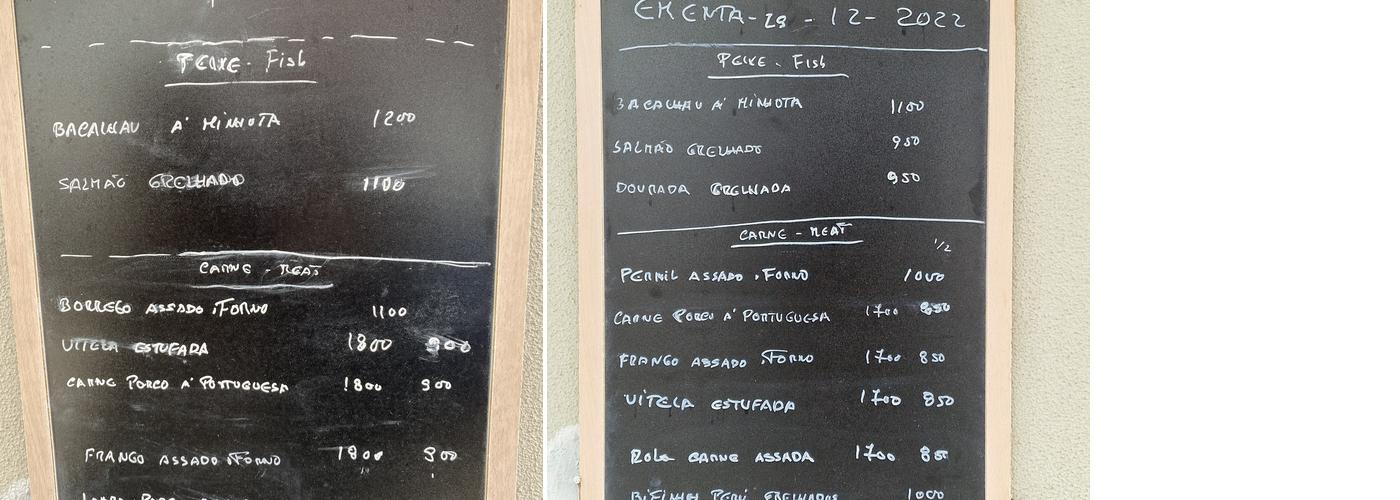 PEIXE - Fish
BACALHAU A' MINHOTA 1200
SALMÃO GRELHADO 1100
CARNE - MEAT
BORREGO ASSADO FORNO 1100
VITELA ESTUFADA 1800 900
CARNE PORCO A' PORTUGUESA 1800 900
FRANGO ASSADO FORNO 1800 900
EMENTA - 28 - 12 - 2022
PEIXE - Fish
BACALHAU A' MINHOTA 1100
SALMÃO GRELHADO 950
DOURADA GRELHADA 950
CARNE - MEAT
1/2
PERNIL ASSADO FORNO 1000
CARNE PORCO A' PORTUGUESA 1700 850
FRANGO ASSADO FORNO 1700 850
VITELA ESTUFADA 1700 850
ROLO CARNE ASSADA 1700 850
BIFINHOS PERÚ GRELHADOS 1000